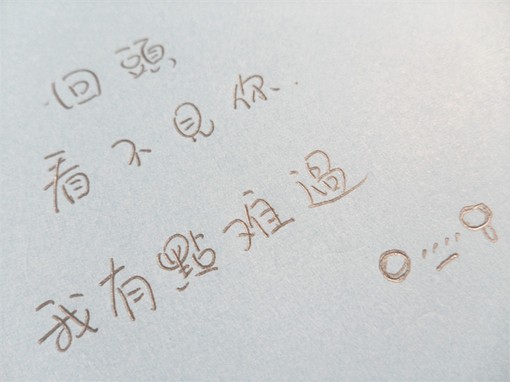 回頭
看不見你
我有點难過